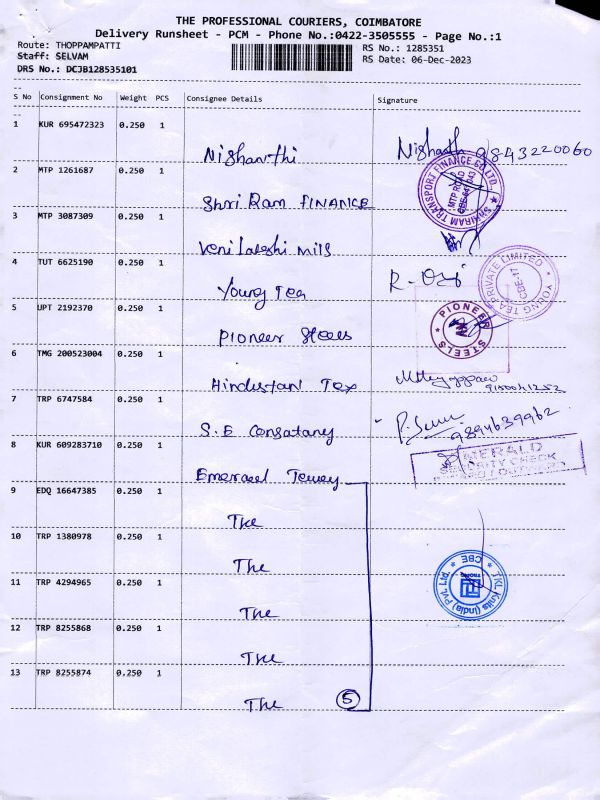 THE PROFESSIONAL COURIERS, COIMBATORE
Delivery Runsheet - PCM - Phone No.:0422-3505555 - Page No.:1
Route: THOPPAMPATTI RS No.: 1285351
Staff: SELVAM RS Date: 06-Dec-2023
DRS No.: DCJB128535101
S No Consignment No Weight PCS Consignee Details Signature
1 KUR 695472323 0.250 1
Nishanthi Nishanth 9843220060
2 MTP 1261687 0.250 1
Shri Ram FINANCE SHRIRAM TRANSPORT FINANCE CO. LTD. MTP ROAD
3 MTP 3087309 0.250 1
Veni Lakshi Mills
4 TUT 6625190 0.250 1
Young Tea YOUNG TEA PRIVATE LIMITED CBE-17
5 UPT 2192370 0.250 1
Pioneer Steels PIONEER STEELS
6 TMG 200523004 0.250 1
Hindustan Tex
7 TRP 6747584 0.250 1
S.E Consatany 9894639962
8 KUR 609283710 0.250 1
Emerald Jewey EMERALD
9 EDQ 16647385 0.250 1
The
10 TRP 1380978 0.250 1
The TKL Knits (India) Pvt. Ltd. CBE
11 TRP 4294965 0.250 1
The
12 TRP 8255868 0.250 1
The
13 TRP 8255874 0.250 1
The 5